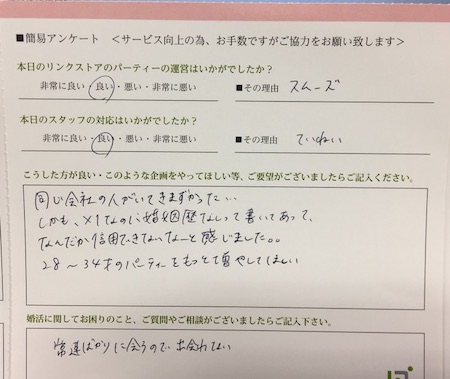 ■簡易アンケート ＜サービス向上の為、お手数ですがご協力をお願い致します＞
本日のリンクストアのパーティーの運営はいかがでしたか？
非常に良い・良い・悪い・非常に悪い ■その理由 スムーズ
本日のスタッフの対応はいかがでしたか？
非常に良い・良い・悪い・非常に悪い ■その理由 ていねい
こうした方が良い・このような企画をやってほしい等、ご要望がございましたらご記入ください。
同じ会社の人がいてきまずかった…
しかも、×1なのに婚姻歴なしって書いてあって、
なんだか信用できないなーと感じました。。
28～34才のパーティーをもっとて増やしてほしい
婚活に関してお困りのこと、ご質問やご相談がございましたらご記入下さい。
常連ばかりに会うので出会れない